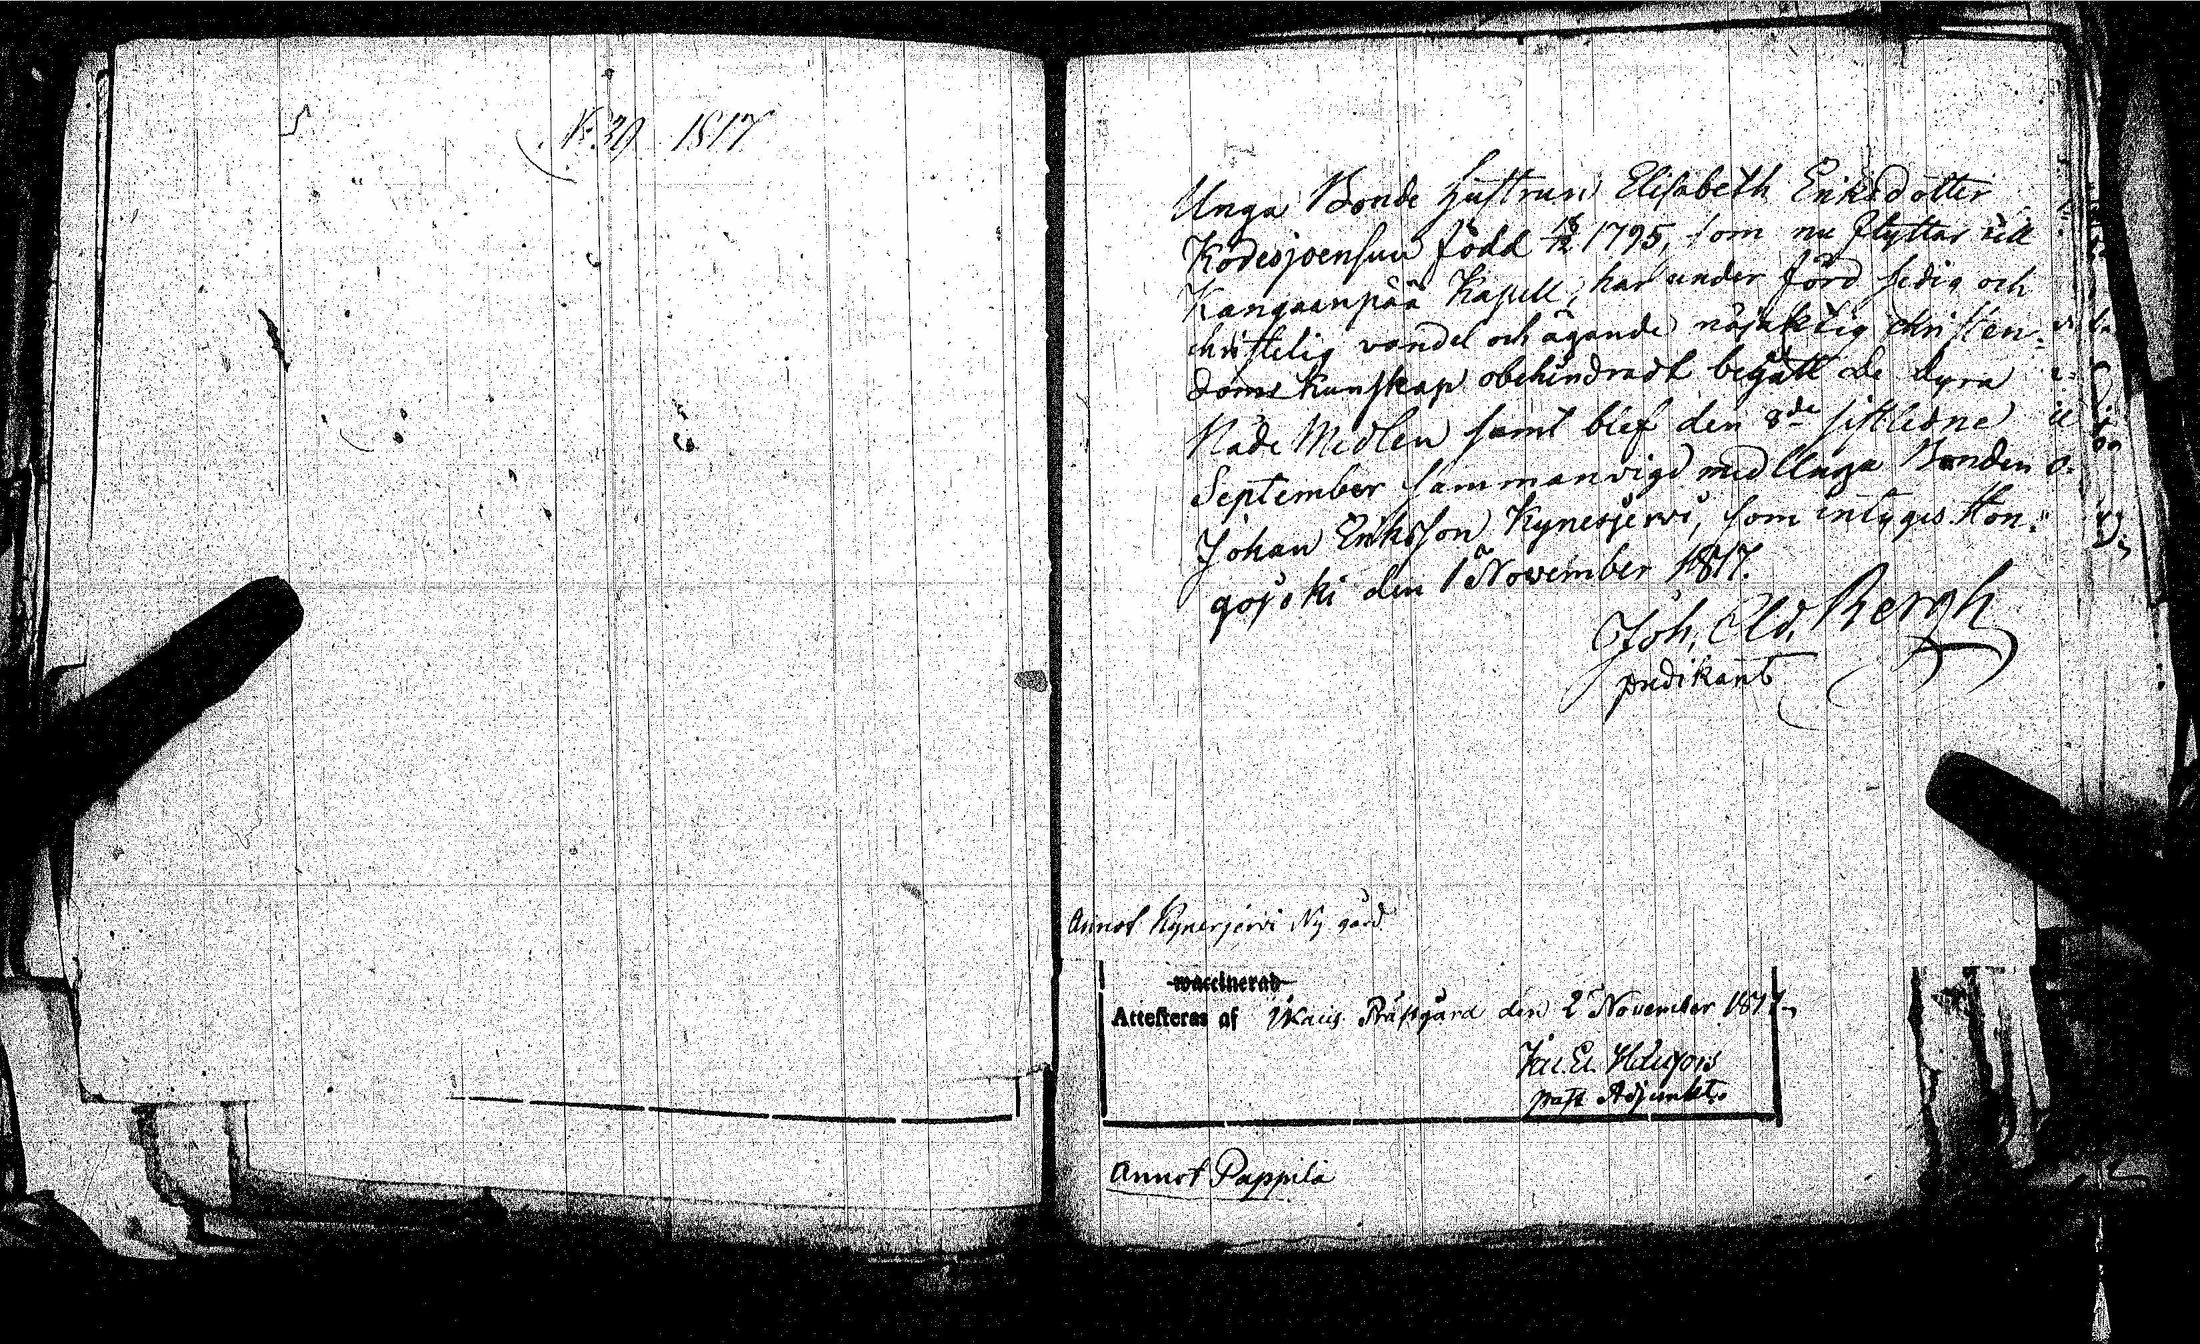 No 39 1817
Unga Bonde Hustrun Elisabeth Eriksdotter
Kodesjoensuu född 18/12 1795, som nu flyttar till
Kangaanpää Kapell, har under förd sedig och
christelig vandel och ägande nöjaktig christen-
doms kunskap obehindradt begått de dyra
Nåde Medlen samt blef den 8de sistledne
September sammanvigd med Unga Bonden
Johan Eriksson Kynesjerwi, som intygas. Hon-
gojoki den 1 November 1817.
Joh. Ad. Bergh
predikant
Annot Kynesjerwi Ny gård
waccinerad
Attesteras af Ikalis Prästgård den 2 November 1817
past Adjunkt.
Annot Pappila